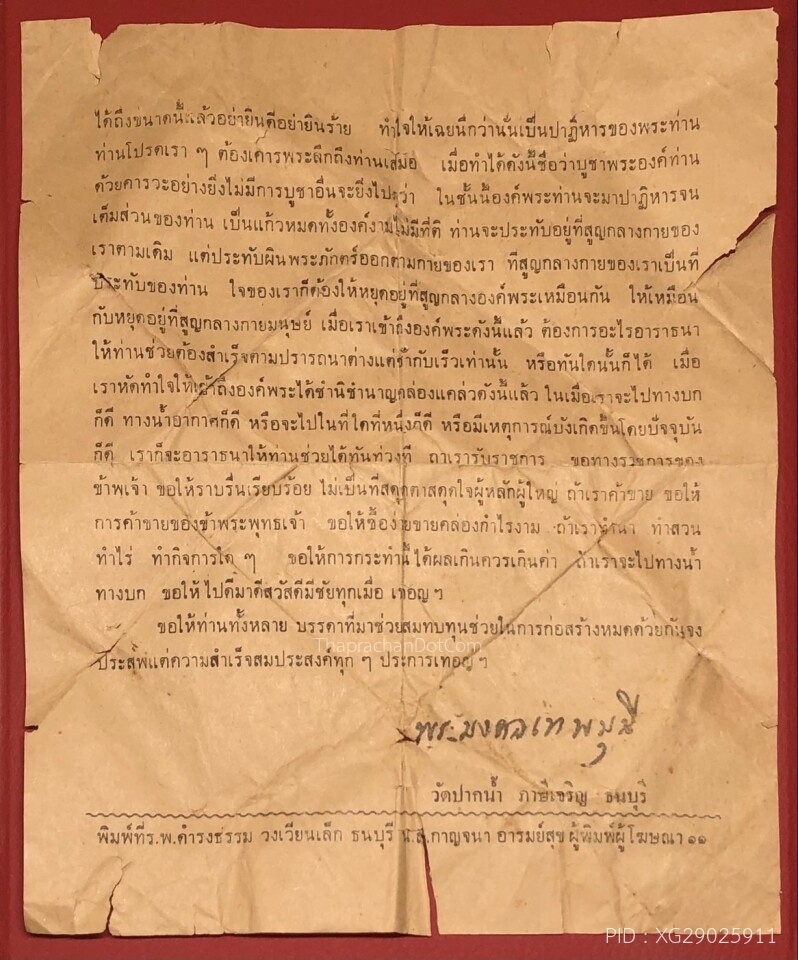 ได้ถึงขนาดนี้แล้วอย่ายินดีอย่ายินร้าย ทำใจให้เฉยนึกว่านั่นเป็นปาฏิหารของพระท่าน
ท่านโปรดเรา ๆ ต้องเคารพระลึกถึงท่านเสมอ เมื่อทำได้ดังนี้ชื่อว่าบูชาพระองค์ท่าน
ด้วยคารวะอย่างยิ่งไม่มีการบูชาอื่นจะยิ่งไปกว่า ในชั้นนี้องค์พระท่านจะมาปาฏิหารจน
เต็มส่วนของท่าน เป็นแก้วหมดทั้งองค์งามไม่มีที่ติ ท่านจะประทับอยู่ที่สูญกลางกายของ
เราตามเดิม แต่ประทับผินพระภักตร์ออกตามกายของเรา ที่สูญกลางกายของเราเป็นที่
ประทับของท่าน ใจของเราก็ต้องให้หยุดอยู่ที่สูญกลางองค์พระเหมือนกัน ให้เหมือน
กับหยุดอยู่ที่สูญกลางกายมนุษย์ เมื่อเราเข้าถึงองค์พระดังนี้แล้ว ต้องการอะไรอาราธนา
ให้ท่านช่วยต้องสำเร็จตามปรารถนาต่างแต่ช้ากับเร็วเท่านั้น หรือทันใดนั้นก็ได้ เมื่อ
เราหัดทำใจให้เข้าถึงองค์พระได้ชำนิชำนาญคล่องแคล่วดังนี้แล้ว ในเมื่อเราจะไปทางบก
ก็ดี ทางน้ำอากาศก็ดี หรือจะไปในที่ใดที่หนึ่งก็ดี หรือมีเหตุการณ์บังเกิดขึ้นโดยปัจจุบัน
ก็ดี เราก็จะอาราธนาให้ท่านช่วยได้ทันท่วงที ถ้าเรารับราชการ ขอทางราชการของ
ข้าพเจ้า ขอให้ราบรื่นเรียบร้อย ไม่เป็นที่สดุดตาสดุดใจผู้หลักผู้ใหญ่ ถ้าเราค้าขาย ขอให้
การค้าขายของข้าพระพุทธเจ้า ขอให้ซื้อง่ายขายคล่องกำไรงาม ถ้าเราทำนา ทำสวน
ทำไร่ ทำกิจการใด ๆ ขอให้การกระทำนี้ได้ผลเกินควรเกินค่า ถ้าเราจะไปทางน้ำ
ทางบก ขอให้ไปดีมาดีสวัสดีมีชัยทุกเมื่อ เทอญ ฯ
ขอให้ท่านทั้งหลาย บรรดาที่มาช่วยสมทบทุนช่วยในการก่อสร้างหมดด้วยกันจง
ThaprachanDotCom
ประสพแต่ความสำเร็จสมประสงค์ทุก ๆ ประการเทอญ ฯ
พระมงคลเทพมุนี
วัดปากน้ำ ภาษีเจริญ ธนบุรี
พิมพ์ที่ร.พ.ดำรงธรรม วงเวียนเล็ก ธนบุรี น.ส.กาญจนา อารมย์สุข ผู้พิมพ์ผู้โฆษณา ๑๑
PID : XG29025911